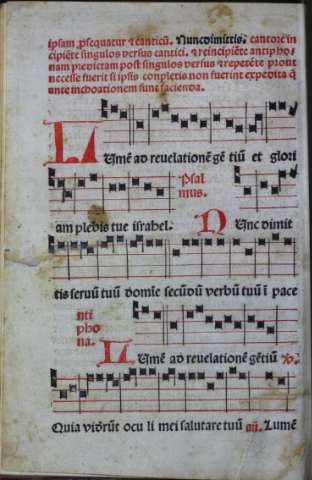 ipsam ꝓsequatur ⁊ canticū. Nuncdimittis. cantore in
cipiēte singulos versus cantici. ⁊ recipiēte antipho
nam predictam post singulos versus ⁊ repetēte prout
necesse fuerit si ipsis completis non fuerint expedita q̄
ante inchoationem sunt facienda.
Lumē ad reuelationē gē tiū et glori
am plebis tue israhel. Psal
mus. Nunc dimit
tis seruū tuū domīe secūdū verbū tuū ī pace
nti
pho
na. Lumē ad reuelationē gētiū
Quia vidērūt ocu li mei salutare tuū añ. Lumē